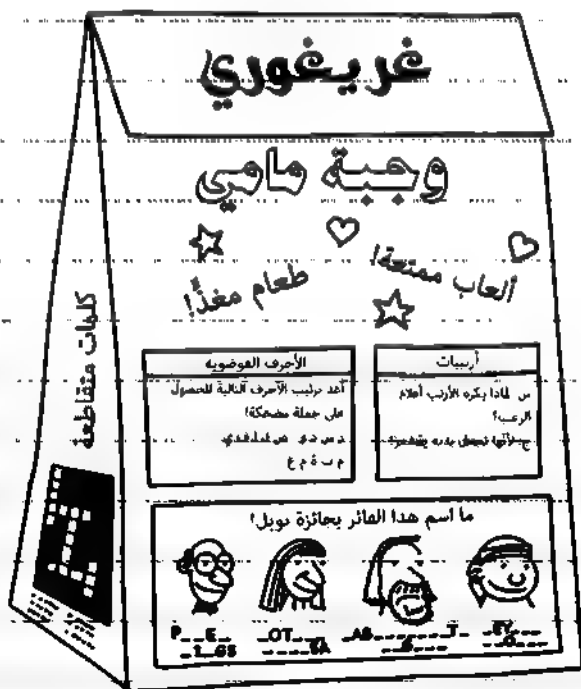 غريغوري
وجبة مامي
ألعاب ممتعة!
طعام مغذٍّ!
كلمات متقاطعة
أرنبيات
س لماذا يكره الأرنب أفلام
الرعب؟
ج لأنها تجعل بدنه يقشعر!
الأحرف الفوضوية
أعد ترتيب الأحرف التالية للحصول
على جملة مضحكة!
م ب ة م ع
ما اسم هذا الفائز بجائزة نوبل؟
P__E_
_1_GS
_OT___
____SA
_AB_______T_
_EY___
__O___